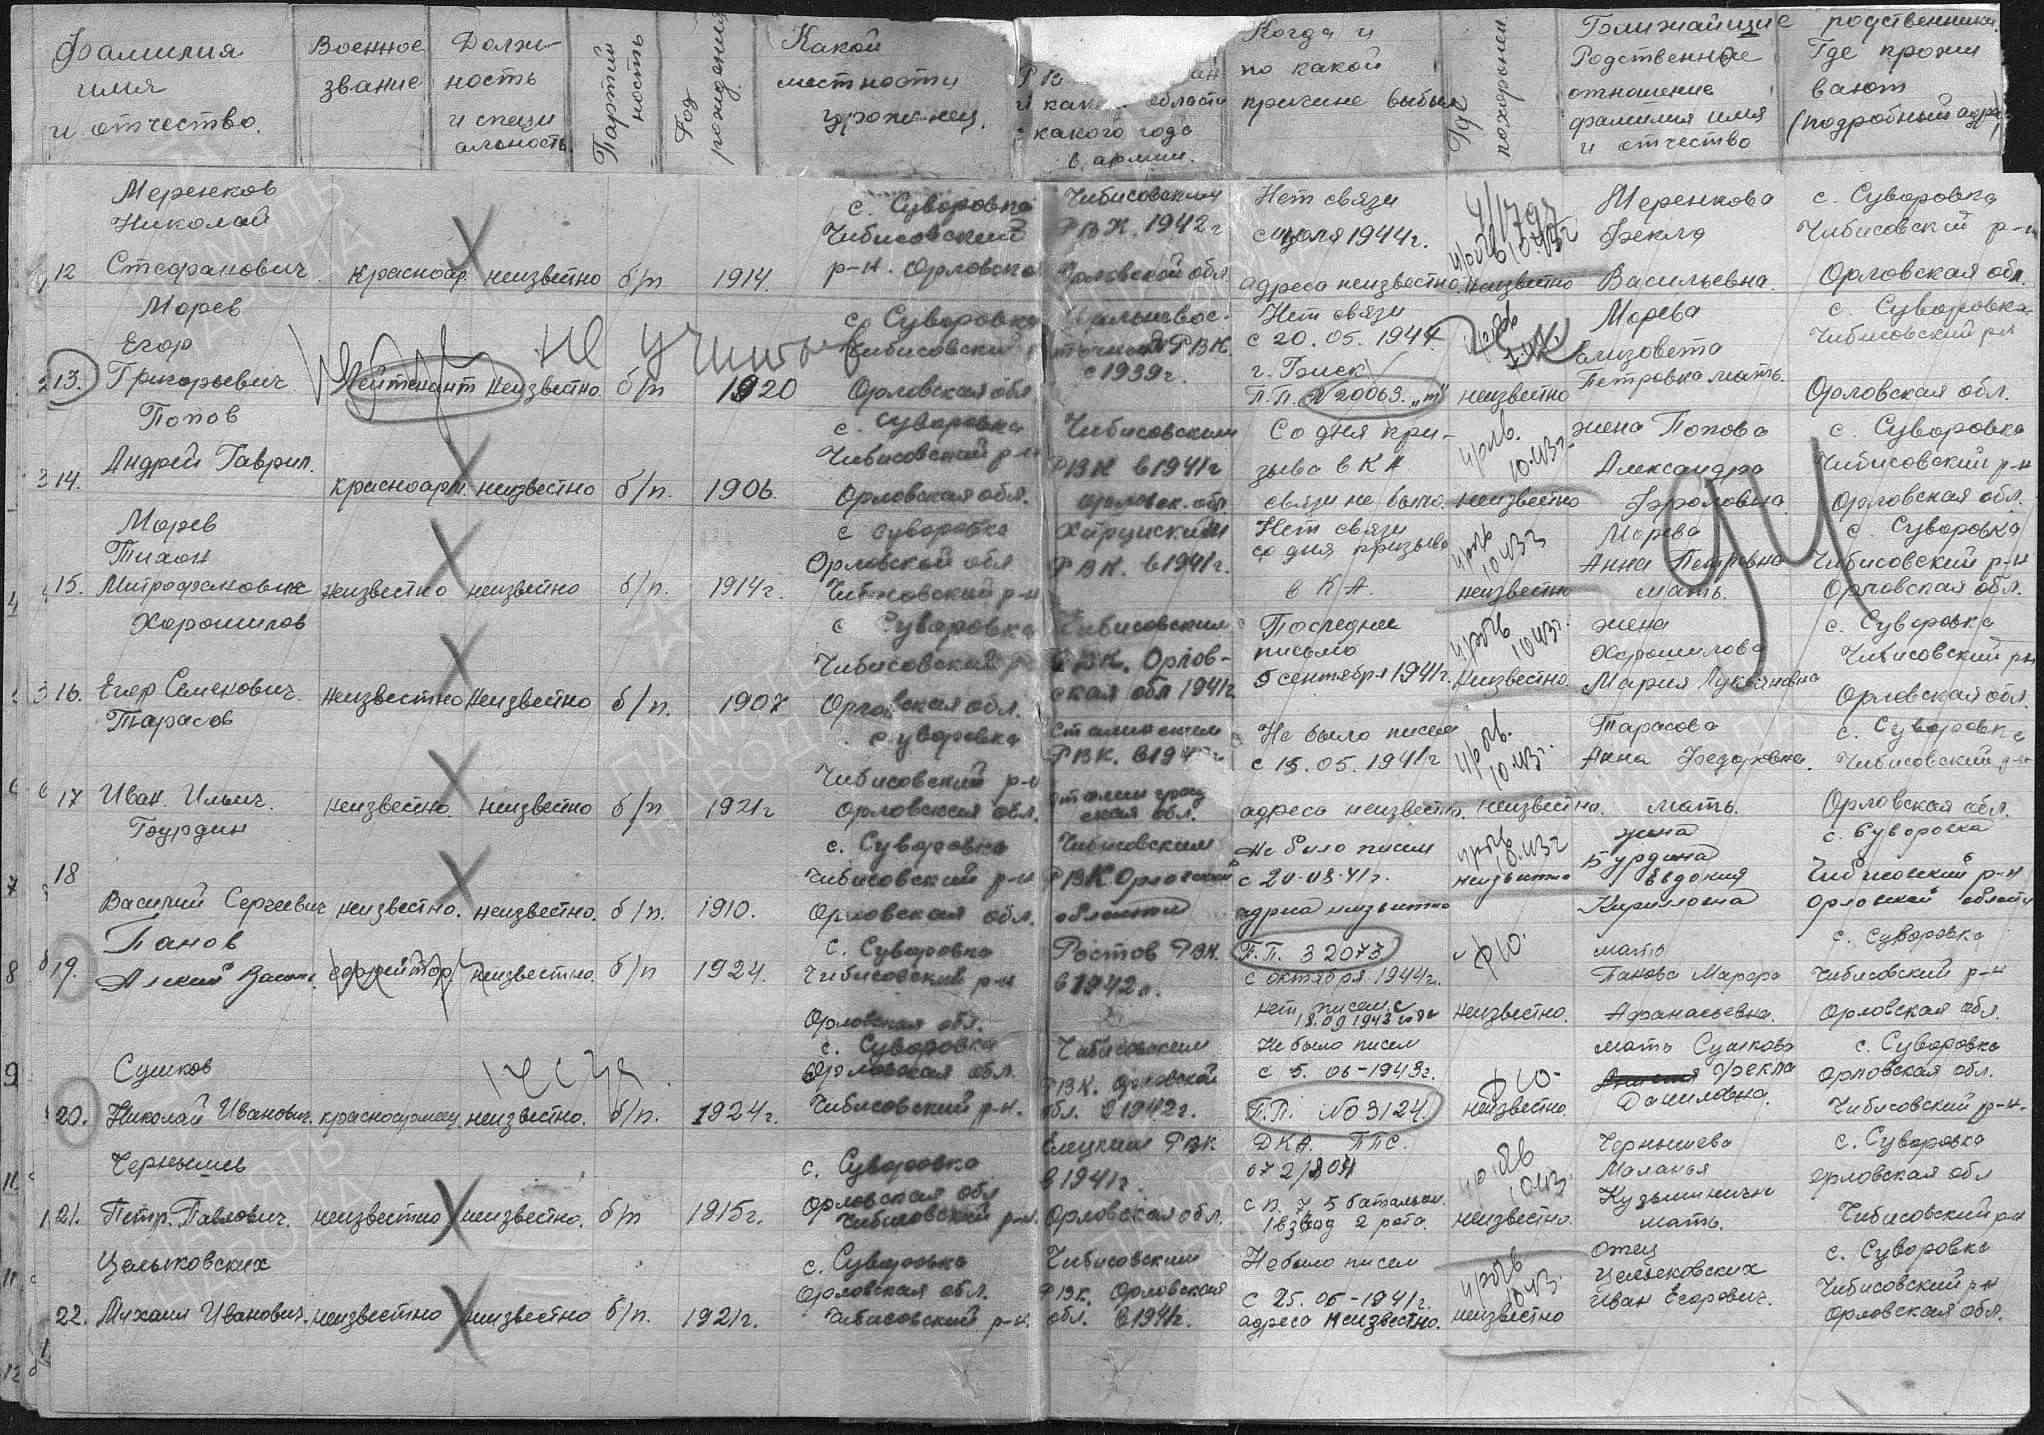 Фамилия
имя
и отчество.
Военное
звание
Долж-
ность
и специ
альность.
Партий
ность
Год
рождения
Какой
местности
уроженец.
какого года
в армии.
Когда и
по какой
причине выбыл
Где
похоронен
Ближайшие
Родственное
отношение
фамилия имя
и отчество
родственники
Где прожи
вают
(подробный адрес)
Меренков
Николай
12 Стефанович. красноар. неизвестно б/п 1914.
с. Суворовка
Чибисовский
р-н. Орловско
Чибисовским
РВК. 1942г
Орловской обл
Нет связи
с июля 1944г.
адреса неизвестно. неизвестно
Меренкова
Фекла
Васильевна.
с. Суворовка
Чибисовский р-н
Орловская обл.
Морев
Егор
13. Григорьевич лейтенант неизвестно. б/п 1920
не учит
с. Суворовка
Чибисовский
Орловская обл
РВК.
с 1939г.
Нет связи
с 20.05.1944
П.П. № 20063. „т" неизвестно
Морева
Елизовета
Петровка мать.
с. Суворовка
Чибисовский р-н
Орловская обл.
Попов
Андрей Гаврил.
14. красноарм. неизвестно б/п. 1906.
с. Суворовка
Чибисовский р-н
Орловская обл.
Чибисовским
РВК в 1941г
Орловск. обл
Со дня при-
зыва в КА
связи не было. неизвестно
жена Попова
Александра
Фроловна
с. Суворовка
Чибисовский р-н
Орловская обл.
94
Морев
Тихон
15. Митрофанович неизвестно неизвестно б/п. 1914г.
с Суворовка
Орловской обл
Чибисовский р-н
РВК. в 1941г.
Нет связи
со дня призыва
в КА. неизвестно
Морева
Анна Петровна
мать.
с. Суворовка
Чибисовский р-н
Орловская обл.
Хорошилов
16. Егор Семенович. неизвестно неизвестно б/п. 1907
с Суворовка
Чибисовский
Орловская обл.
Чибисовским
РВК. Орлов-
ская обл 1941г
Последнее
письмо
5 сентября 1941г. неизвестно
жена
Хорошилова
Мария Лукьяновна
с. Суворовка
Чибисовский р-н
Орловская обл.
Тарасов
17 Иван Ильич. неизвестно. неизвестно б/п 1921г
Суворовка
Чибисовский р-н
Орловская обл.
Сталинским
РВК.
Сталинград
ская обл.
Не было писем
с 15.05.1941г
адреса неизвестн. неизвестно.
Тарасова
Анна Федоровна.
мать.
с. Суворовка
Чибисовский р-н
Орловская обл.
Бурдин
18
Василий Сергеевич неизвестно. неизвестно. б/п. 1910.
с. Суворовка
Чибисовский р-н
Орловская обл.
Чибисовским
РВК Орловской
области
Не было писем
с 20.08.41г.
адреса неизвестно
неизвестно
жена
Бурдина
Евдокия
Кириловна
с. Суворовка
Чибисовский р-н
Орловской области
Панов
19. Алексей Васил. ефрейтор неизвестно. б/п 1924.
с. Суворовка
Чибисовский р-н
Орловская обл.
Ростов РВК.
в 1942г.
П.П. 32073
с октября 1944г.
нет писем. с
18.09 1943 года
неизвестно.
мать
Панова Марфа
Афанасьевна.
с. Суворовка
Чибисовский р-н
Орловская обл.
Сушков
20. Николай Иванович. красноармеец. неизвестно. б/п. 1924г.
с. Суворовка
Орловская обл.
Чибисовский р-н.
Чибисовским
РВК. Орловской
обл. в 1942г.
Не было писем
с 5.06-1943г.
П.П. № 03124.
неизвестно.
мать Сушкова
Фекла
Даниловна.
с. Суворовка
Орловская обл.
Чибисовский р-н.
Чернышев
21. Петр. Павлович. неизвестно неизвестно. б/п 1915г.
с. Суворовка
Орловская обл
Чибисовский р-н.
Елецким РВК
в 1941г.
Орловская обл.
ДКА. ППС.
с п. 7, 5 батальон.
1 взвод 2 рота. неизвестно.
Чернышева
Маланья
Кузьминична
мать.
с. Суворовка
Орловская обл
Чибисовский р-н
Целыковских
22. Михаил Иванович. неизвестно неизвестно б/п. 1921г.
с. Суворовка
Орловская обл.
Чибисовский р-н.
Чибисовским
РВК. Орловская
обл. в 1941г.
Не было писем
с 25.06-1941г.
адреса неизвестно. неизвестно
Отец
Целыковских
Иван Егорович.
с. Суворовка
Чибисовский р-н
Орловская обл.
ПАМЯТЬ
НАРОДА